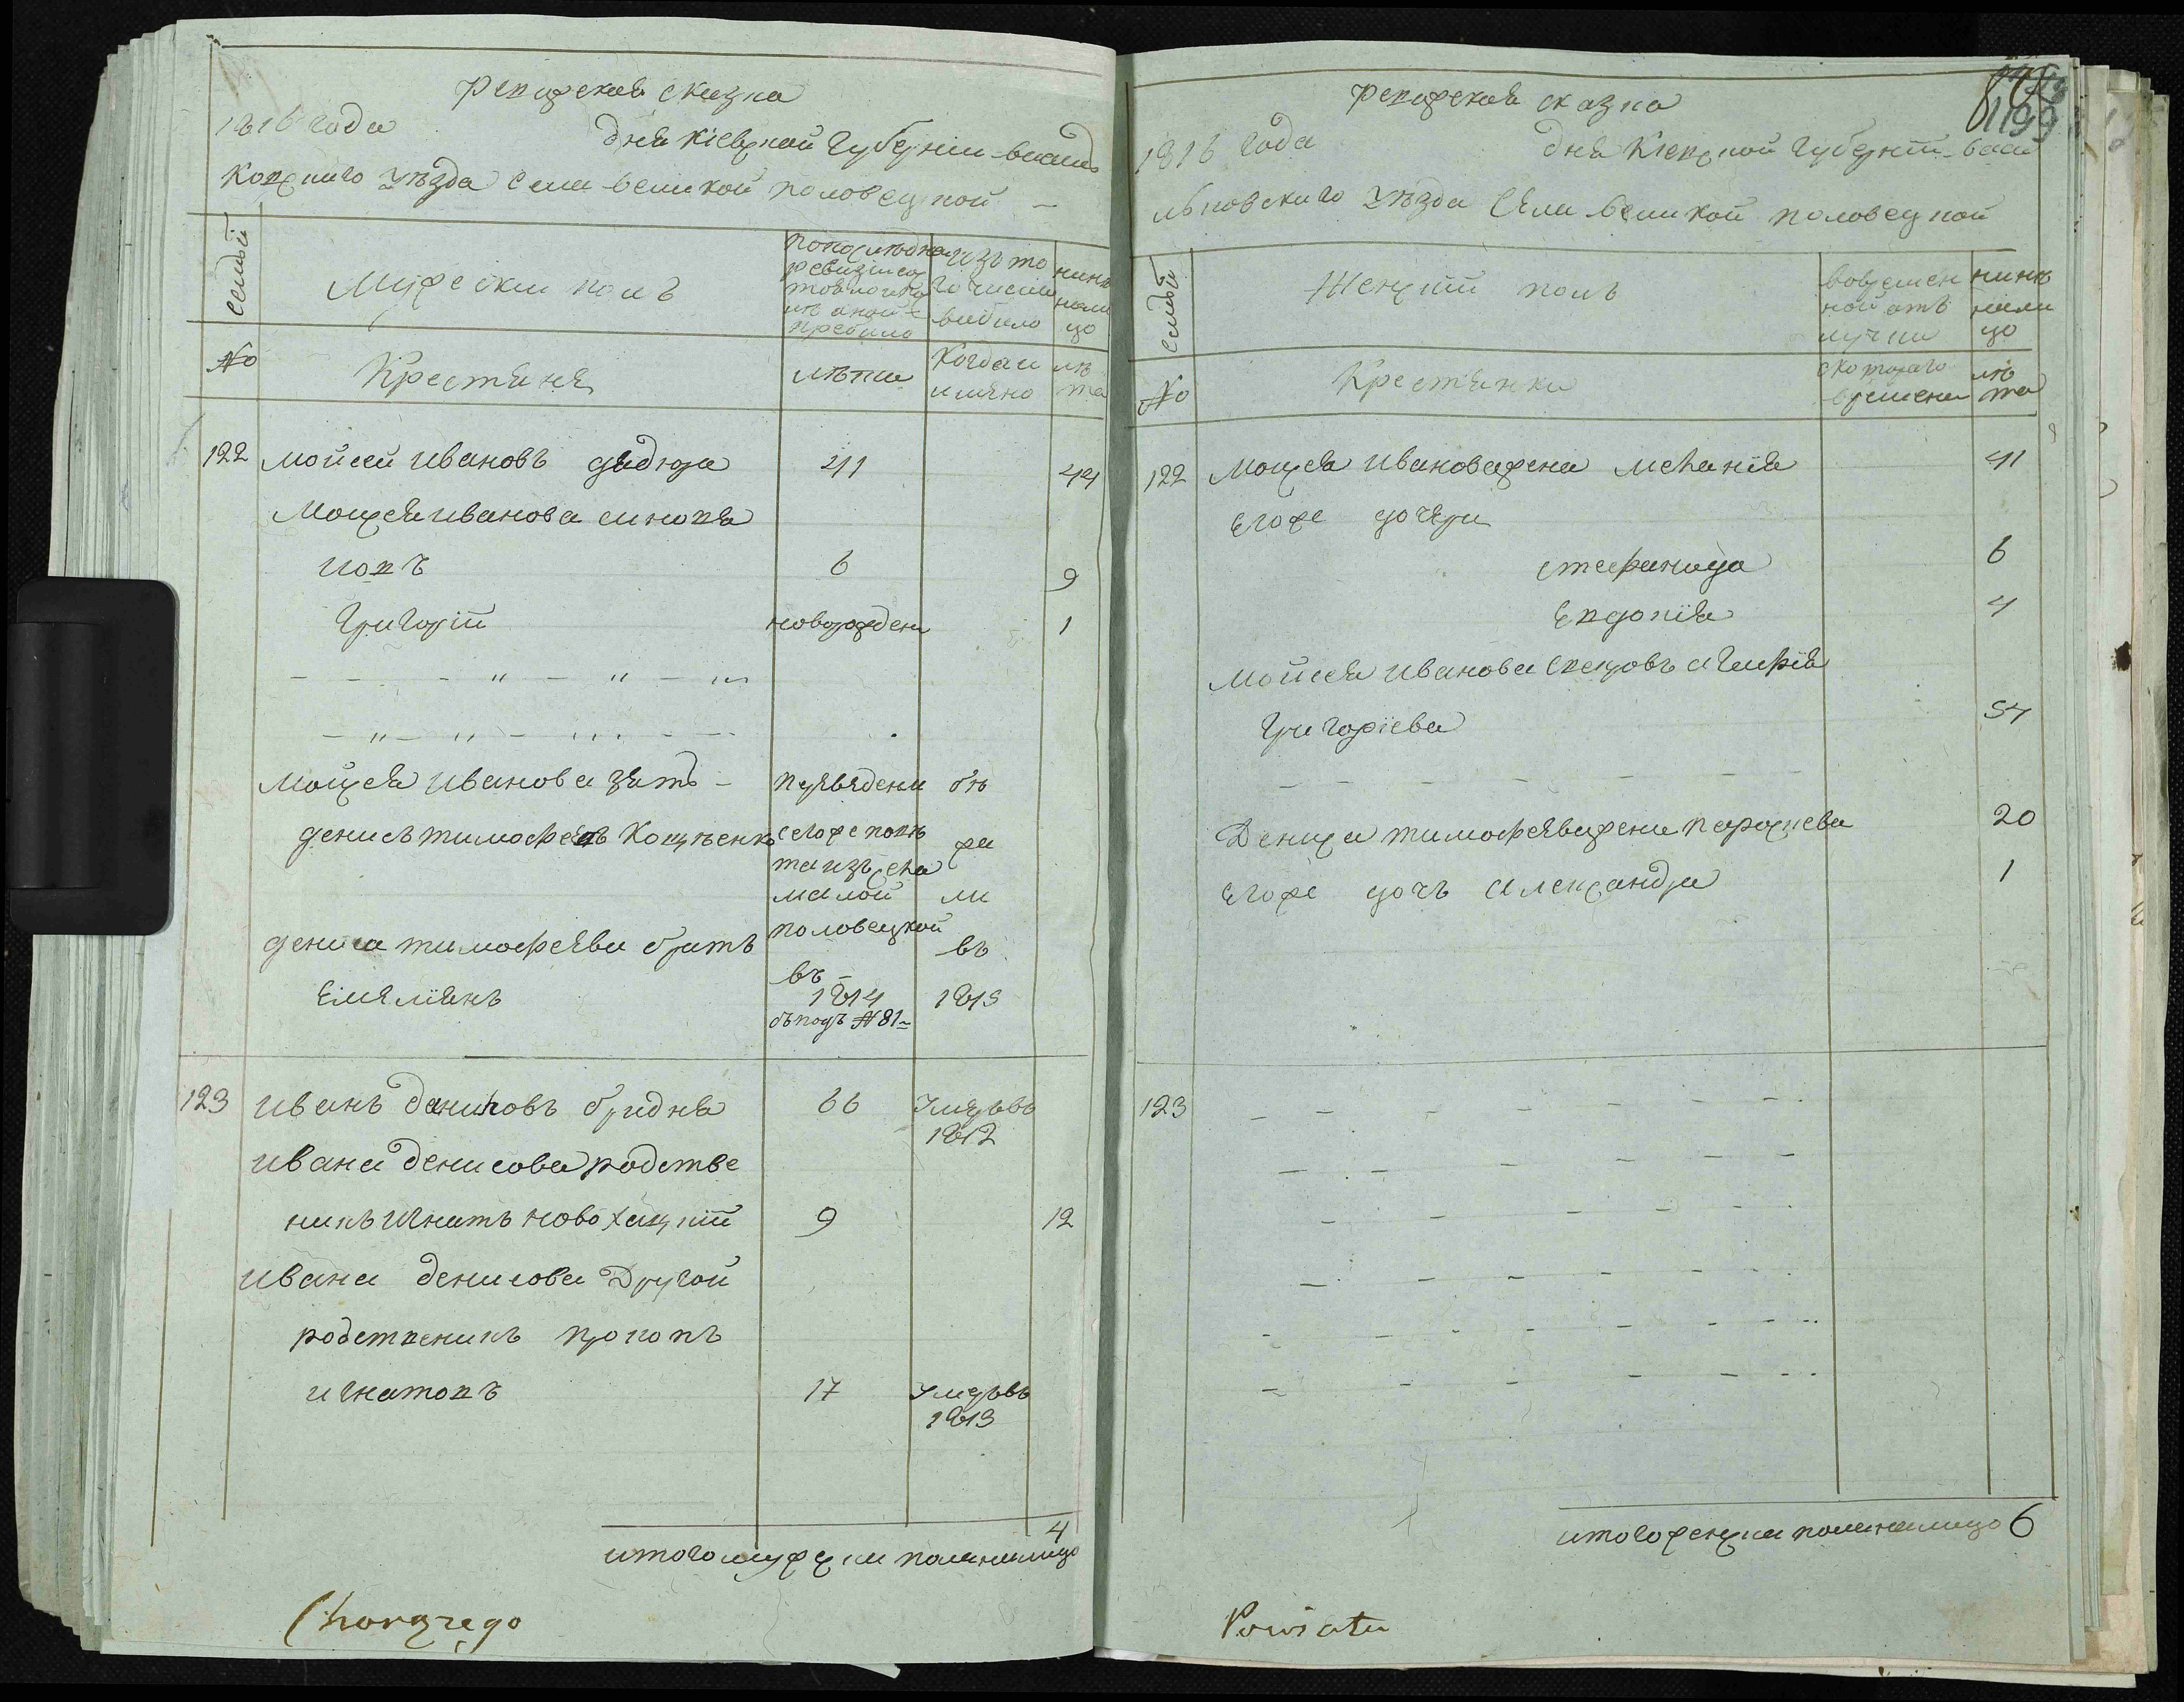 Ревизская сказка
1816 года дня Кіевской Губерніи Василь
ковского уезда села Великой Половецкой
семьи
Мужеска полъ
по последней ревизіи состояло и после оной прибыло
изъ того числа выбыло
ныне налицо
№
Крестьяне
лета
Когда именно
лета
122 Мойсей Ивановъ Дидюра 41 44
Мойсея Иванова синовя
Іовъ 6 9
Григорій новорожден 1
Мойсея Иванова зять переведени бѣ
Денисъ Тимофеевъ Коцюенко сего же повѣ жа
та изъ села
малой ли
Дениса Тимофеева братъ половецкой въ
въ
Емеліянъ 1814 1815
съ подъ №81
123 Иванъ Денисовъ Бридня 66 умеръ въ
1812
Ивана Денисова родстве
никъ Игнатъ Новохацкій 9 12
Ивана Денисова Другой
родственикъ Прокопъ
Игнатовъ 17 умеръ въ
1813
4
итого мужеска пола налицо
Chorążego
1199
Ревизская сказка
1816 года дня Кіевской Губерніи Васи
льковского уезда Села Великой Половецкой
семьи
Женскій полъ
во временной отлучки
ныне налицо
№
Крестянки
с котораго времени
лета
122 Мойсея Иванова жена Меланія 41
Его же дочери
Стефанида 6
Евдокія 4
Мойсея Иванова свекровь Агафія
Григоріева 54
Дениса Тимофеева жена Параскева 20
Его же дочь Александра 1
123
итого женска пола налицо 6
Powiatu